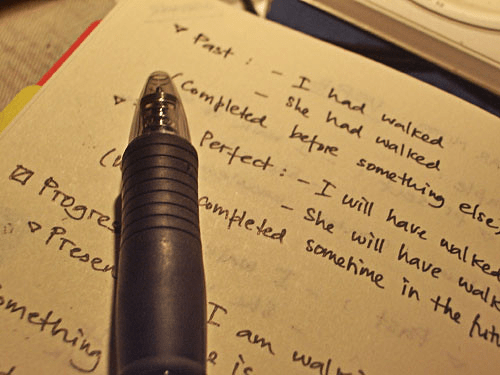 Past : - I had walked
- She had walked
(Completed before something else,
Perfect : - I will have walked
- She will have walk
completed sometime in the futu
Progres
Presen
I am walki
omething
e is